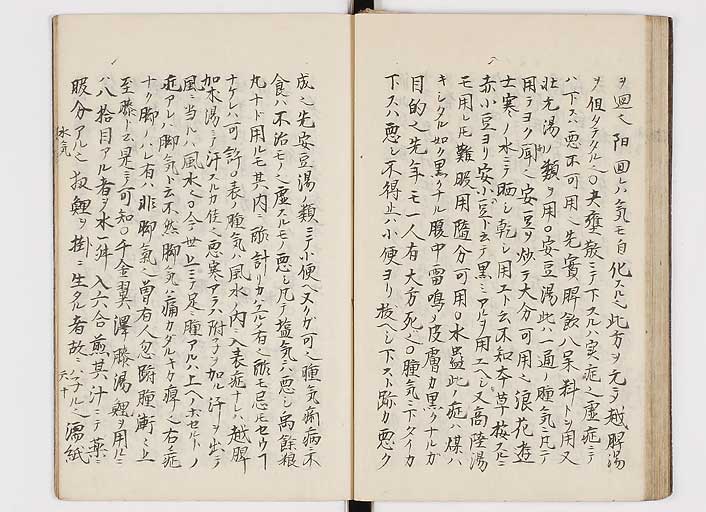 ヲ廻之陽回レハ氣モ自化スル之此方ヲ元テ越脾湯
ヲ但シタテタル之〇夫壅散ニテ下スルハ実症之虚症ニテ
ハ下スハ悪不可用之先實脾飲八呆料トヲ用又
壮尤湯ノ類ヲ用〇安豆湯此ハ一通ノ腫氣ニ凡テ
用テヨク聞之安豆ヲ炒テ大分可用之浪花遊
士寒ノ水ニテ晒シ乾シ用エト云不知本草ヲ按スルニ
赤小豆ヨリ安小豆ト云テ黒ミアルヲ用エヘシ又高陸湯
モ用レ𪜈難服用随分可用〇水蟲此ノ症ハ煤ハ
キシタル如ク黒クナル腹中雷鳴ノ皮膚カ黒クナルカ
目的之先年モ一人有大方死之〇腫気ニ下タイカ
下スハ悪シ不得止ハ小便ヨリ按ヘシ下スト跡カ悪ク
成之先安豆湯ノ類ニテ小便ヘヌクカ可之腫氣痢病不
食ハ不治モノ之虚スルモノ悪シ凡テ塩気ハ悪シ禹餘粮
丸ナド用ルモ其内ニ酢計リカハエルノ有之酢モ忌モセウコ
ナケレハ可許〇表ノ腫気ハ風水ノ内ニ入表症ナレハ越脾
加朮湯ニテ汗スルカ佳之悪寒アラハ附子ヲ加ル汗ヲ出テ
風ニ当ルハ風水之〇今世上ニテ足ニ腫アルハ上ヘノホセルトノ
症アレハ脚氣ト云不然脚氣ハ痛カダルキカ痺之右ノ症
ナク脚ノハレ有ハ非脚氣之曽有人忽跗腫漸々上
至膝ト云是ニテ可知〇千金翼澤膝湯鯉ヲ用ルニ
ハ八拾目アル者ヲ水一舛入六合煎其汁ニテ薬ニ
服分アル之扨鯉ヲ掛ニ生タル者故ニハナル之濡紙
水気